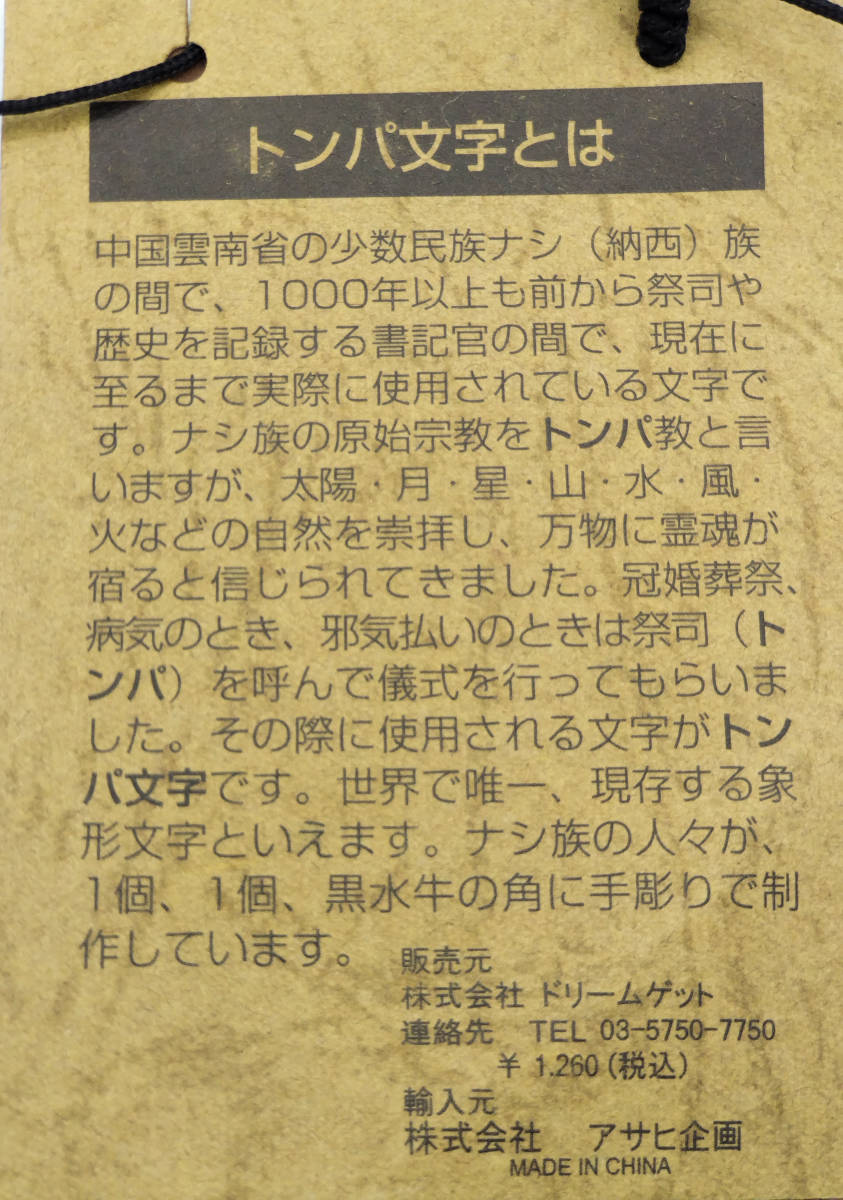 トンパ文字とは
中国雲南省の少数民族ナシ（納西）族
の間で、1000年以上も前から祭司や
歴史を記録する書記官の間で、現在に
至るまで実際に使用されている文字で
す。ナシ族の原始宗教をトンパ教と言
いますが、太陽・月・星・山・水・風・
火などの自然を崇拝し、万物に霊魂が
宿ると信じられてきました。冠婚葬祭、
病気のとき、邪気払いのときは祭司（ト
ンパ）を呼んで儀式を行ってもらいま
した。その際に使用される文字がトン
パ文字です。世界で唯一、現存する象
形文字といえます。ナシ族の人々が、
1個、1個、黒水牛の角に手彫りで制
作しています。
販売元
株式会社 ドリームゲット
連絡先 TEL 03-5750-7750
¥ 1.260（税込）
輸入元
株式会社 アサヒ企画
MADE IN CHINA